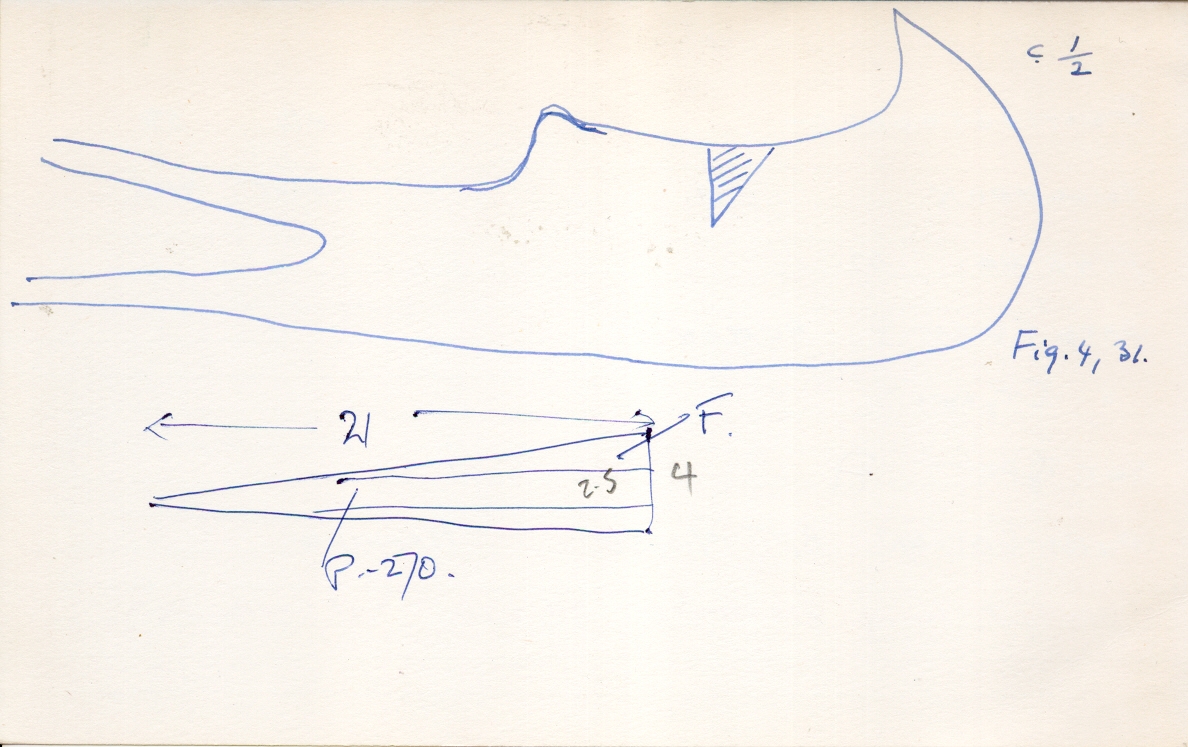 c. 1/2
Fig. 4, 31.
21
F.
2.5
4
P.-270.